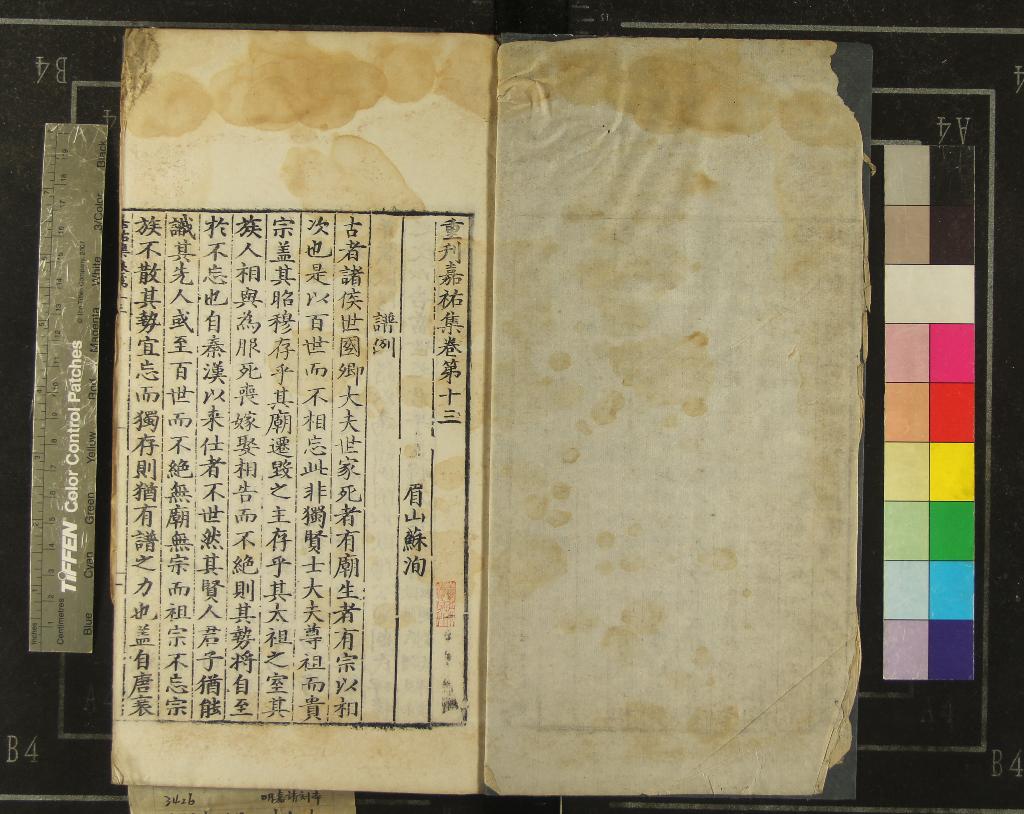 重刊嘉祐集卷第十三
眉山蘇洵
譜例
古者諸侯世國卿大夫世家死者有廟生者有宗以相
次也是以百世而不相忘此非獨賢士大夫尊祖而貴
宗盖其昭穆存乎其廟遷毀之主存乎其太祖之室其
族人相與為服死喪嫁娶相告而不絕則其勢將自至
於不忘也自秦漢以来仕者不世然其賢人君子猶能
識其先人或至百世而不絕無廟無宗而祖宗不忘宗
族不散其勢宜忘而獨存則猶有譜之力也盖自唐衰
TIFFEN Color Control Patches
© The Tiffen Company, 2007
Inches
Centimetres
Blue Cyan Green Yellow Red Magenta White 3/Color Black
B4
A4
B4
B4
3426